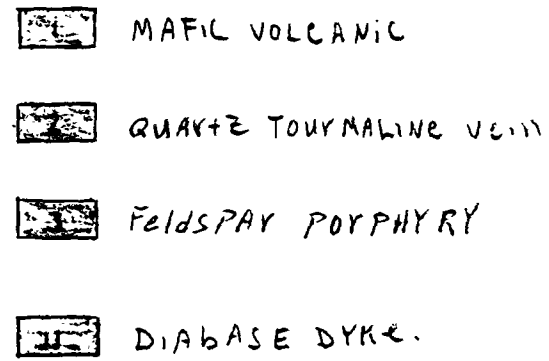 1 MAFIC VOLCANIC
2 QUARTZ TOURMALINE VEIN
3 FeldSPAR PORPHYRY
DIAbASE DYKe.